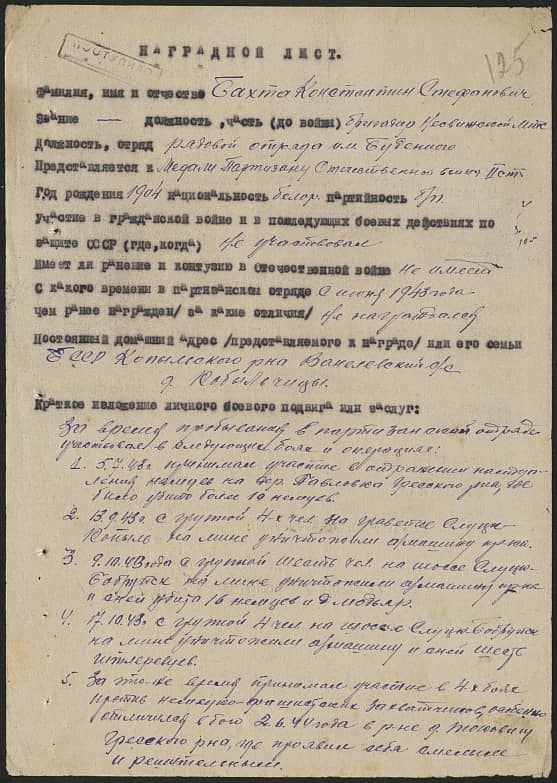 ПОСТУПИЛО
125
НАГРАДНОЙ ЛИСТ.
Фамилия, имя и отчество Бахта Константин Стефанович
Звание — должность, часть (до войны) бригадир Несвижской МТС
Должность, отряд рядовой отряда им Буденного
Представляется к Медали Партизану Отечественной войны II ст
Год рождения 1904 национальность белор. партийность б/п.
Участие в гражданской войне и в последующих боевых действиях по
защите СССР (где, когда) Не участвовал
Имеет ли ранение и контузию в Отечественной войне не имеет
С какого времени в партизанском отряде с июня 1943 года
чем ранее награжден/ за какие отличия/ Не награждался
Постоянный домашний адрес /представляемого к награде/ или его семьи
БССР Копыльского р-на с/с
д.
Краткое изложение личного боевого подвига или заслуг:
За время пребывания в партизанском отряде
участвовал в следующих боях и операциях:
1. 5.7.43г. принимал участие в отражении наступ-
ления немцев на дер. Павловка Гресского р-на, где
было убито более 10 немцев.
2. 13.9.43г. с группой 4-х чел на гравейке Слуцк-
Копыль на мине уничтожили а/машину пр-ка.
3. 9.10.43 года с группой шесть чел на шоссе Слуцк-
Бобруйск на мине уничтожили а/машину пр-ка
и в ней убито 16 немцев и мадьяр.
4. 17.10.43г. с группой 4 чел на шоссе Слуцк-Бобруйск
на мине уничтожили а/машину и в ней шесть
гитлеровцев.
5. За это-же время принимал участие в 4-х боях
против немецко-фашистских захватчиков, особенно
отличился в бою 2.6.44 года в р-не д.
Гресского р-на, где проявил себя смелым
и решительным.